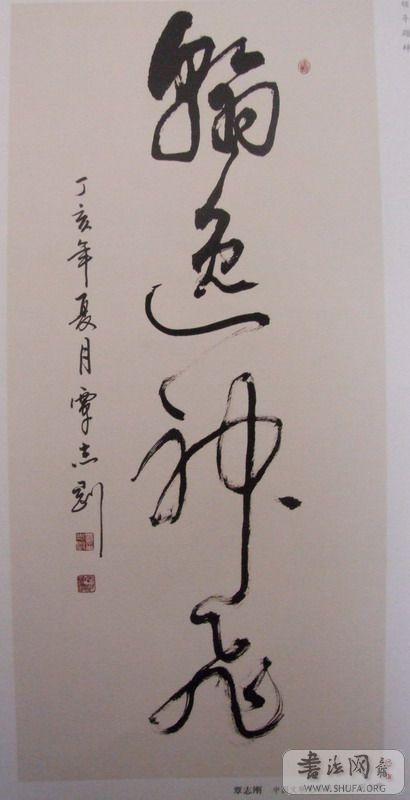 翰逸神飛
丁亥年夏月覃志剛
覃志刚
书法网
WWW.SHUFA.ORG